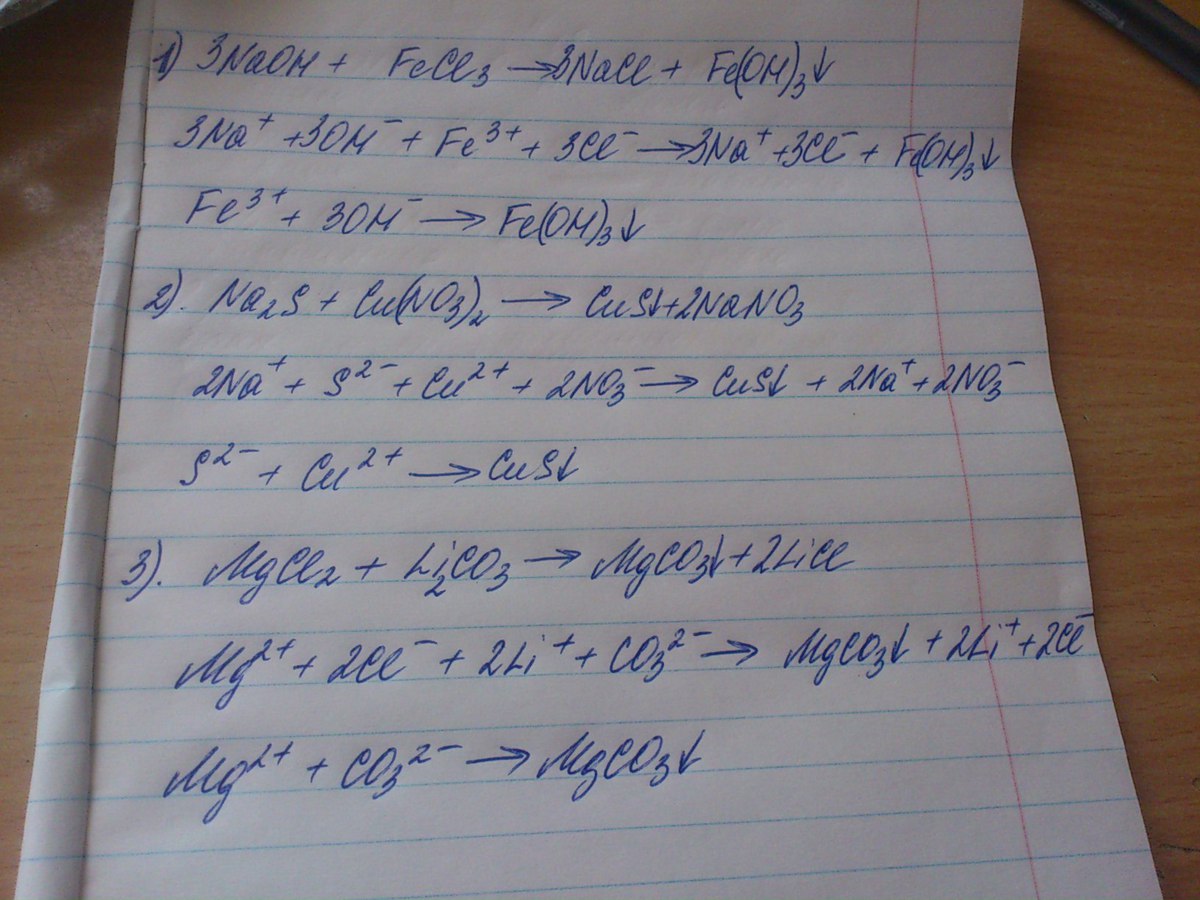 1) 3NaOH + FeCl₃ → 3NaCl + Fe(OH)₃↓
3Na⁺ + 3OH⁻ + Fe³⁺ + 3Cl⁻ → 3Na⁺ + 3Cl⁻ + Fe(OH)₃↓
Fe³⁺ + 3OH⁻ → Fe(OH)₃↓
2). Na₂S + Cu(NO₃)₂ → CuS↓ + 2NaNO₃
2Na⁺ + S²⁻ + Cu²⁺ + 2NO₃⁻ → CuS↓ + 2Na⁺ + 2NO₃⁻
S²⁻ + Cu²⁺ → CuS↓
3). MgCl₂ + Li₂CO₃ → MgCO₃↓ + 2LiCl
Mg²⁺ + 2Cl⁻ + 2Li⁺ + CO₃²⁻ → MgCO₃↓ + 2Li⁺ + 2Cl⁻
Mg²⁺ + CO₃²⁻ → MgCO₃↓